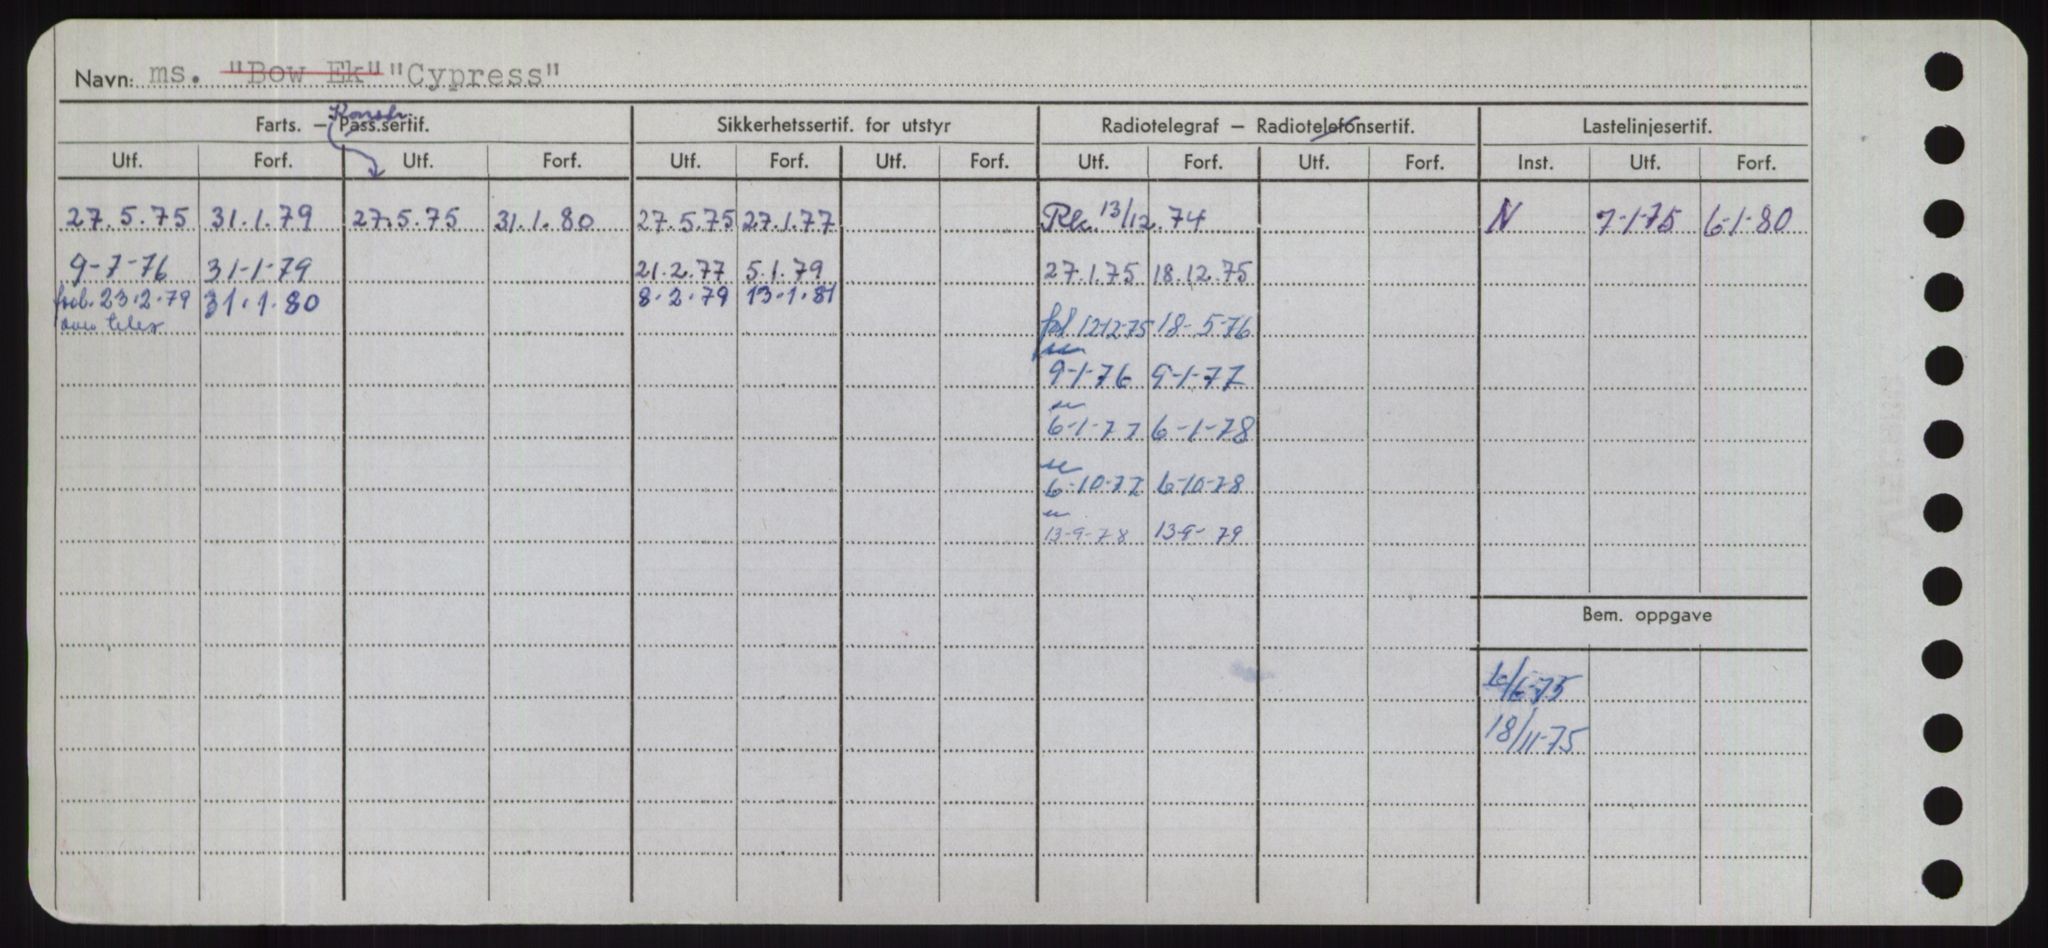 Navn: ms. "Bow Ek" "Cypress"
Konstr.
Farts. — Pass.sertif. Sikkerhetssertif. for utstyr Radiotelegraf — Radiotelefonsertif. Lastelinjesertif.
Utf. Forf. Utf. Forf. Utf. Forf. Utf. Forf. Utf. Forf. Utf. Forf. Inst. Utf. Forf.
27.5.75 31.1.79 27.5.75 31.1.80 27.5.75 27.1.77 13/12.74 N 7-1-75 6-1-80
9-7-76 31-1-79 21.2.77 5.1.79 27.1.75 18.12.75
23.2.79 31.1.80 8.2.79 13.1.81
telex 12-12-75 18-5-76
9-1-76 9-1-77
6-1-77 6-1-78
6-10-77 6-10-78
13-9-78 13-9-79
Bem. oppgave
/6-75
18/11-75